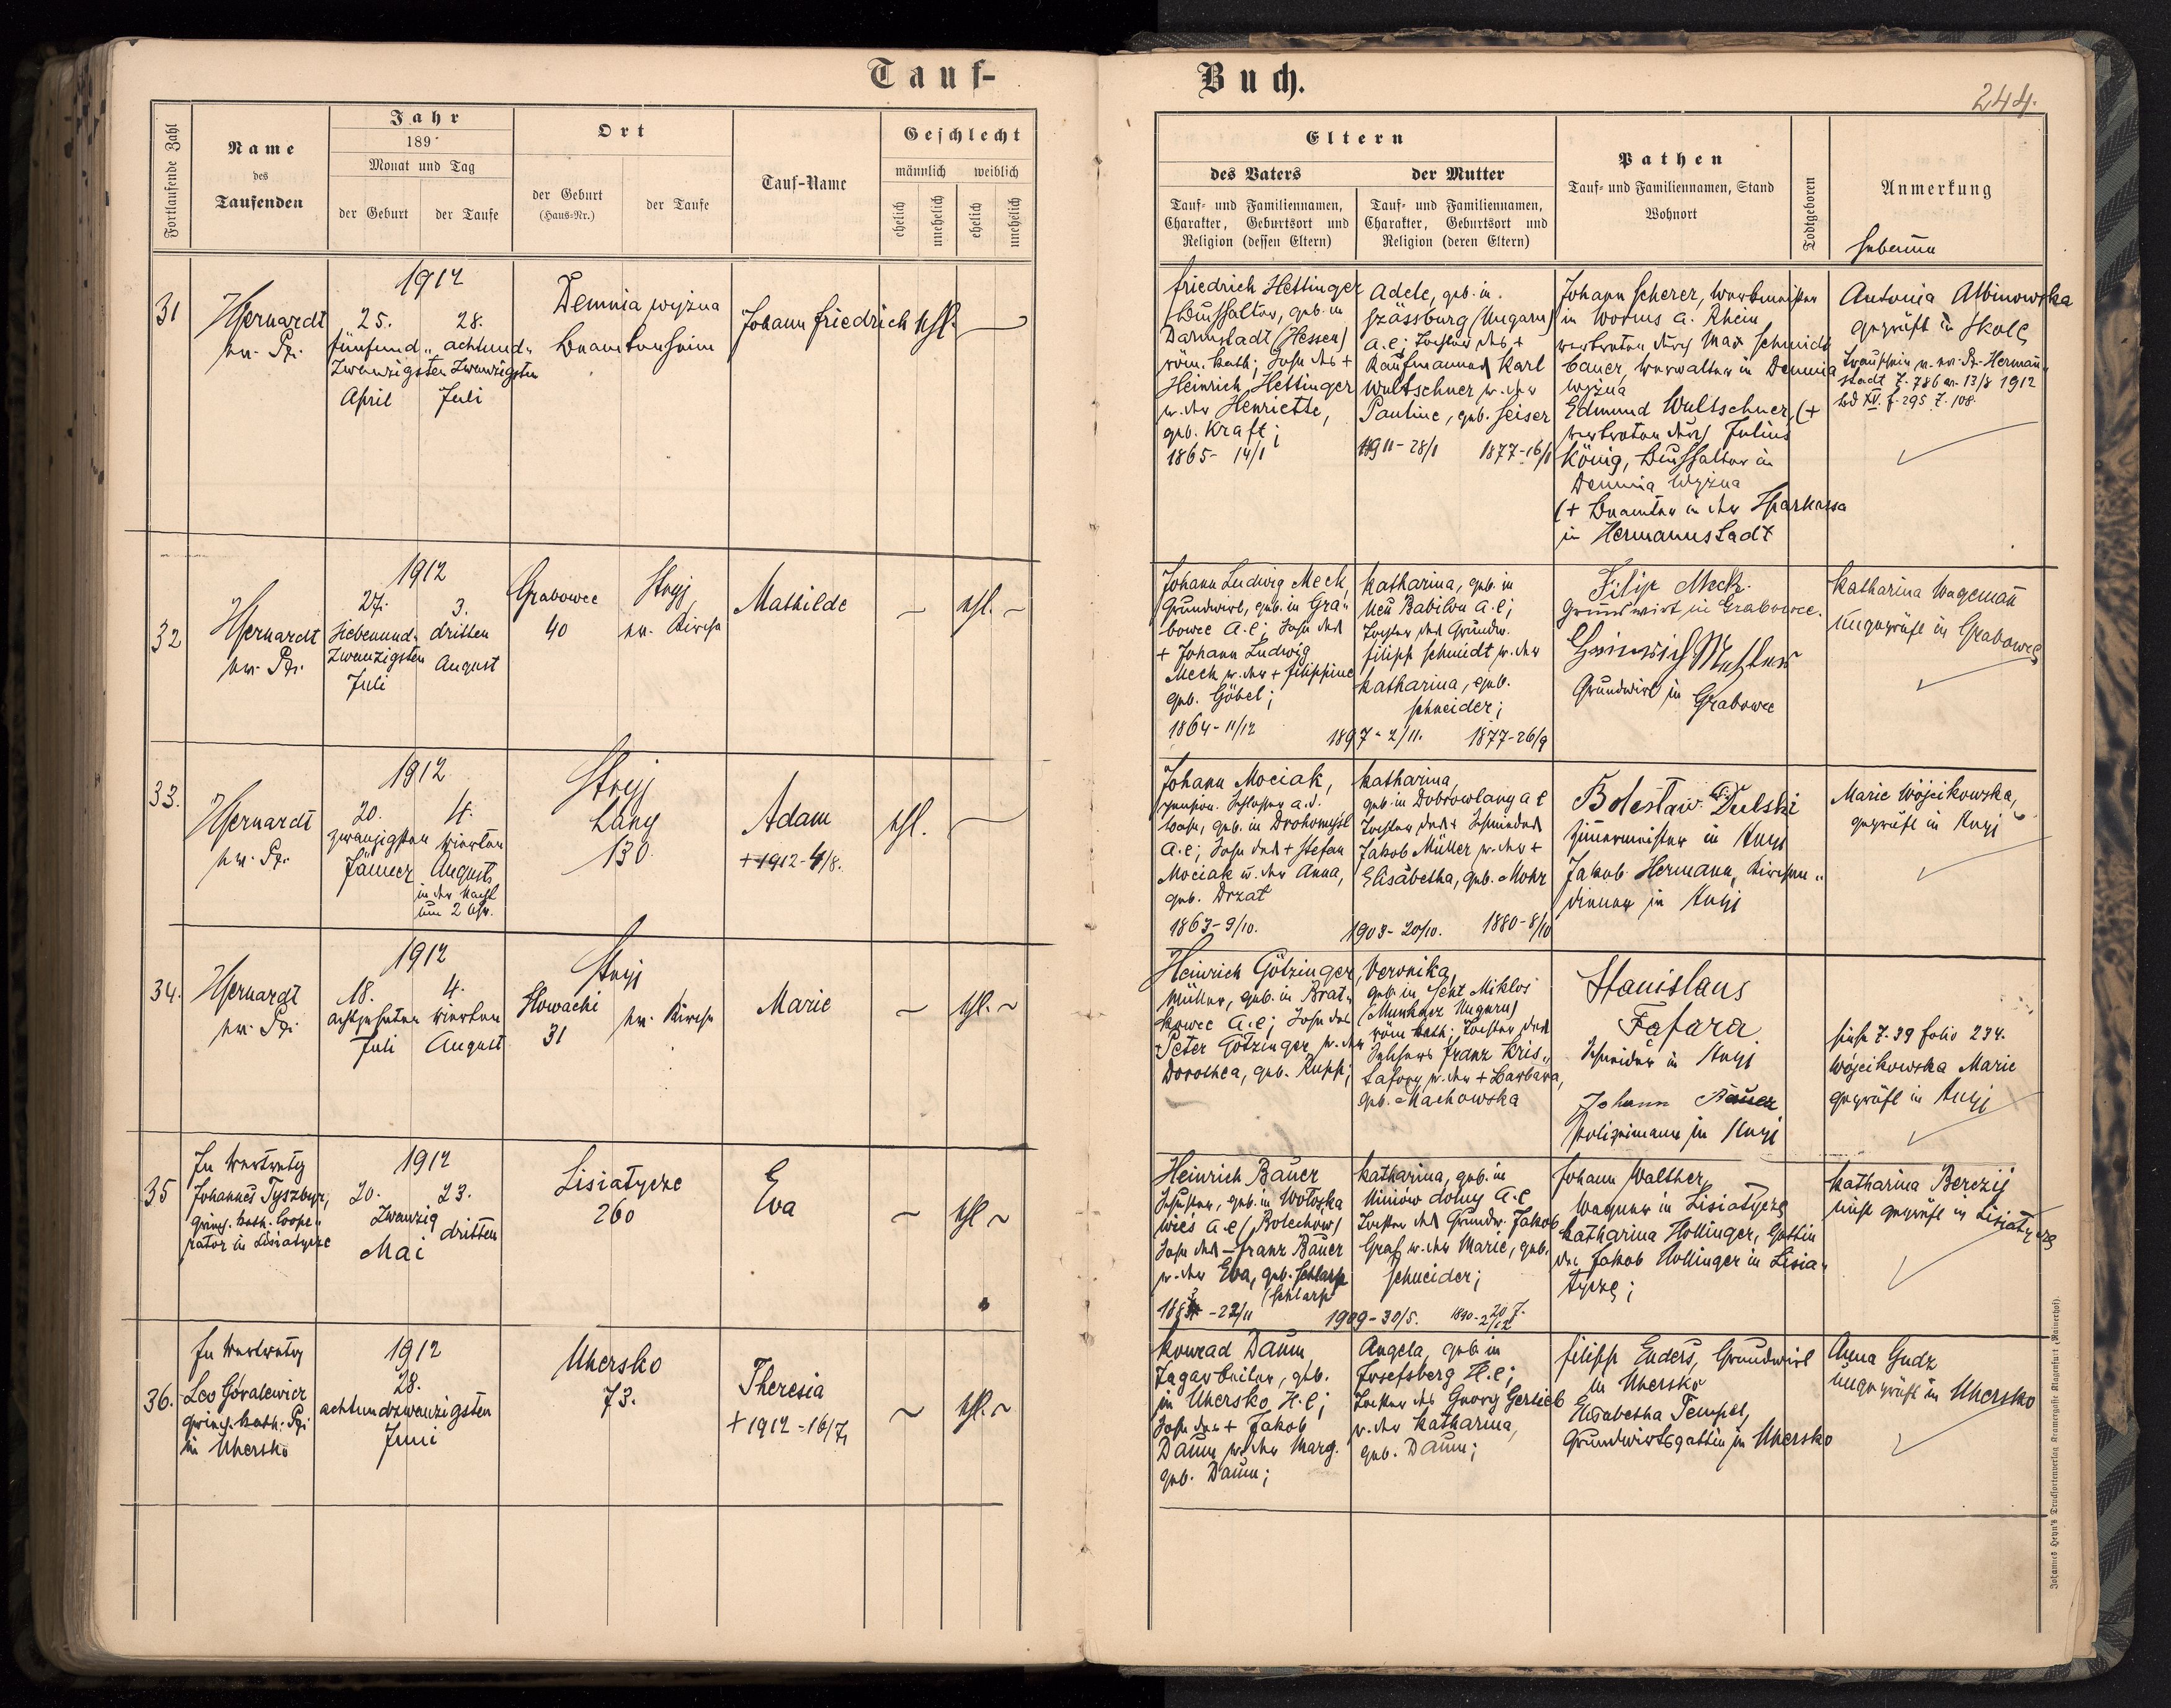 Tauf-
Buch.
244.
Fortlaufende Zahl
Name
des
Taufenden
Jahr
189
Monat und Tag
der Geburt
der Taufe
Ort
der Geburt
(Haus-Nr.)
der Taufe
Tauf-Name
Geschlecht
männlich
weiblich
ehelich
unehelich
ehelich
unehelich
Eltern
des Vaters
der Mutter
Tauf- und Familiennamen,
Charakter, Geburtsort und
Religion (dessen Eltern)
Tauf- und Familiennamen,
Charakter, Geburtsort und
Religion (deren Eltern)
Pathen
Tauf- und Familiennamen, Stand
Wohnort
Todtgeboren
Anmerkung
Hebamme
31
1912
25.
fünfund-
zwanzigsten
April
28.
achtund-
zwanzigsten
Juli
Demnia wyżna
Beamtenheim
Johann Friedrich
ehl.
Friedrich Hettinger
Buchhalter, geb. in
Darmstadt (Hessen)
röm. kath; Sohn des +
Heinrich Hettinger
u. der Henriette,
geb. Kraft;
1865- 14/1
Adele, geb. in
Szässburg (Ungarn)
a.c; Tochter des +
Kaufmannes Karl
Wultschner u. der
Pauline, geb. Seiser
1911- 28/1 1877-16/1
Johann Scherer, Werkmeister
in Worms a. Rhein
vertreten durch Max Schmidt
bauer, Verwalter in Demnia
wyżna
Edmund Wultschner, (+
vertreten durch Julius
König, Buchhalter in
Demnia Wyżna
(+ Beamter in der Sparkassa
in Hermannstadt
Antonia Albinowska
geprüft in Skole
Trauschein v. ev. Pf. Hermann-
stadt Z. 786 v. 13/8 1912
bd XV. f. 295 Z. 108.
32
1912
27.
siebenund-
zwanzigsten
Juli
3.
dritten
August
Grabowce
40
Stryj
ev. Kirche
Mathilde
ehl.
Johann Ludwig Meck,
Grundwirt, geb. in Gra-
bowce A.C; Sohn des
+ Johann Ludwig
Meck u. der + Filippine
geb. Göbel;
1864- 11/12
Katharina, geb. in
Neu Babilon a.c;
Tochter des Grundw.
Filipp Schmidt u. der
Katharina, geb.
Schneider;
1897- 2/11. 1877-26/9
Filip Meck
Grundwirt in Grabowce.
Grundwirt in Grabowce
Katharina Wagemañ
Ungeprüft in Grabowce
33.
1912
20.
zwanzigsten
Jänner
4.
vierten
August
in der Nacht
um 2 Uhr.
Stryj
Łany
130
Adam
+ 1912-4/8.
ehl.
Johann Mociak,
pension. Schlosser a.d.
Bahn, geb. in Drohomyśl
A.C; Sohn des + Stefan
Mociak u. der Anna,
geb. Drzat
1863-9/10.
Katharina,
geb. in Dobrowlany a c
Tochter des + Schmiedes
Jakob Müller u. der +
Elisabetha, geb. Mohr
1903- 20/10. 1880-8/10
Bolesław Dulski
Zimmermeister in Stryj
Jakob Hermann, Kirchen-
diener in Stryj
Marie Wójcikowska,
geprüft in Stryj
34.
1912
18.
achtzehnten
Juli
4.
vierten
August
Stryj
Słowacki
31
ev. Kirche
Marie
ehl.
Heinrich Götzinger,
Müller, geb. in Brat-
kowce A.C; Sohn des
Peter Götzinger u. der
Dorothea, geb. Rupp;
Veronika,
geb. in Sent Miklos
(Munkacz Ungarn)
röm kath; Tochter des
Franz Kris-
tafory u. der + Barbara,
geb. Machowska
Stanislaus
Fafara
Schneider in Stryj
Johann Bauer
Polizeimann in Stryj
siehe Z. 39 folio 234.
Wójcikowska Marie
geprüft in Stryj
35
In Vertretg
Johannes Tyszbyr,
griech. kath. Coope-
rator in Lisiatycze
1912
20.
23.
zwanzig
dritten
Mai
Lisiatycze
260
Eva
ehl
Heinrich Bauer
Schuster, geb. in Wołoska
wieś A.C (Bolechow)
Sohn des Franz Bauer
u. der Eva, geb. Schlarp
(Schlarp
Katharina, geb. in
Uiniow dolny A.C
Tochter des Grundw. Jakob
Graf u. der Marie, geb.
Schneider;
1909- 30/5.
Johann Walther,
Wagner in Lisiatycze
Katharina Hollinger, Gattin
des Jakob Hollinger in Lisia-
tycze;
Katharina Berezij
nicht geprüft in Lisiatycze
36.
In Vertretg
Leo Góralewicz
griech. kath. Pfr.
in Uhersko
1912
28.
achtundzwanzigsten
Juni
Uhersko
73.
Theresia
+ 1912-16/7
ehl.
Konrad Daum
Tagarbeiter, geb.
in Uhersko H.C;
Sohn des + Jakob
Daum u. der Marg.
geb. Daum;
Angela, geb in
Josefsberg H.C;
Tochter des Georg Gerlieb
u. der Katharina,
geb. Daum;
Filipp Enders, Grundwirt
in Uhersko
Elisabetha Tempel,
Grundwirtsgattin in Uhersko
Anna Gudz
ungeprüft in Uhersko
Johannes Heyn's Drucksortenverlag Kramergasse Klagenfurt (Rainerhof).